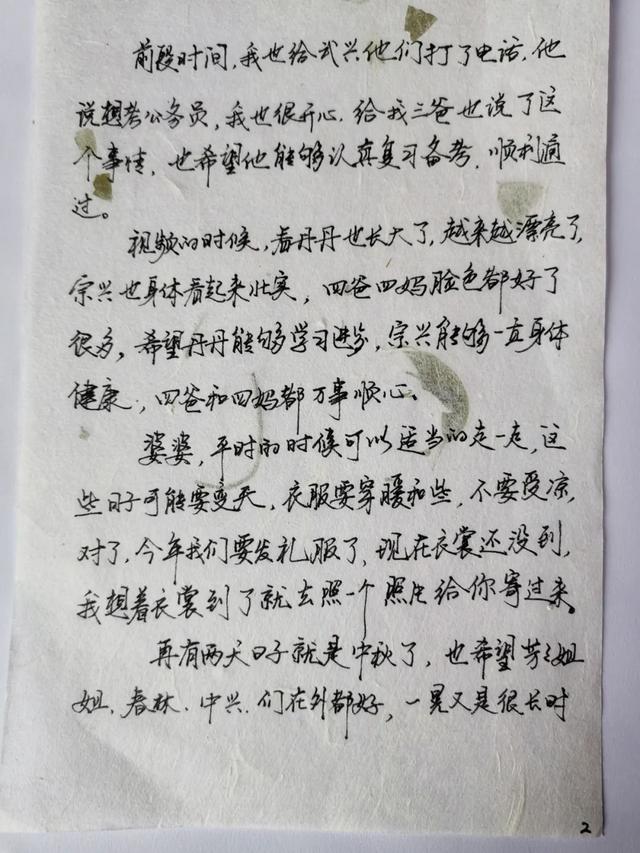 前段时间，我也给武兴他们打了电话，他
说想考公务员，我也很开心，给我三爸也说了这
个事情，也希望他能够认真复习备考，顺利通
过。
视频的时候，看丹丹也长大了，越来越漂亮了，
宗兴也身体看起来壮实，四爸四妈脸色都好了
很多，希望丹丹能够学习进步，宗兴能够一直身体
健康，四爸和四妈都万事顺心。
婆婆，平时的时候可以适当的走一走，这
些日子可能要变天，衣服要穿暖和些，不要受凉，
对了，今年我们要发礼服了，现在衣裳还没到，
我想着衣裳到了就去照一个照片给你寄过来。
再有两天日子就是中秋了，也希望芳芳姐
姐、春林、中兴、们在外都好，一晃又是很长时
2